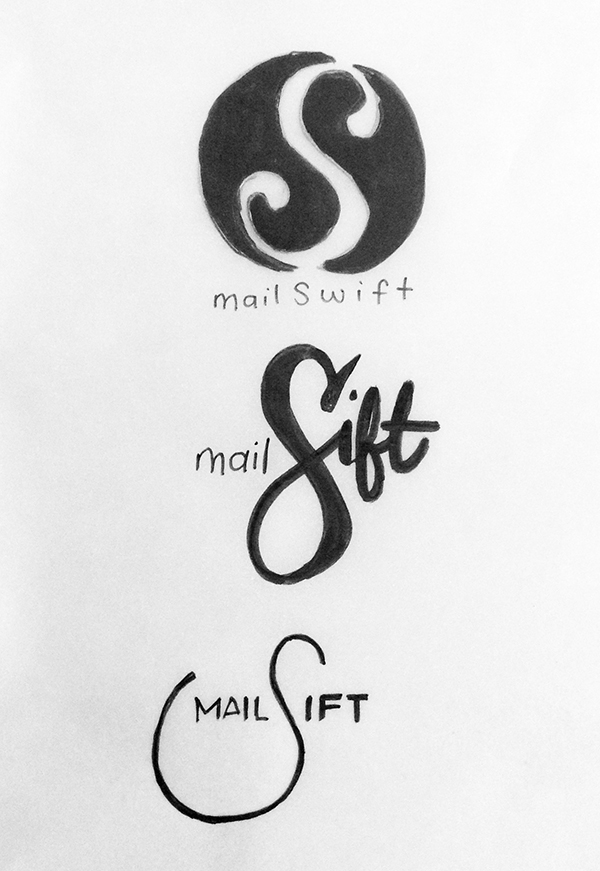 S
mail Swift
mail Sift
MAIL SIFT